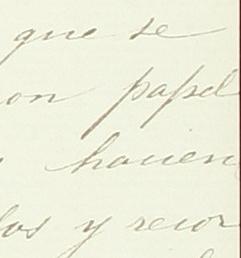 que se
on papel
hauen
los y recor